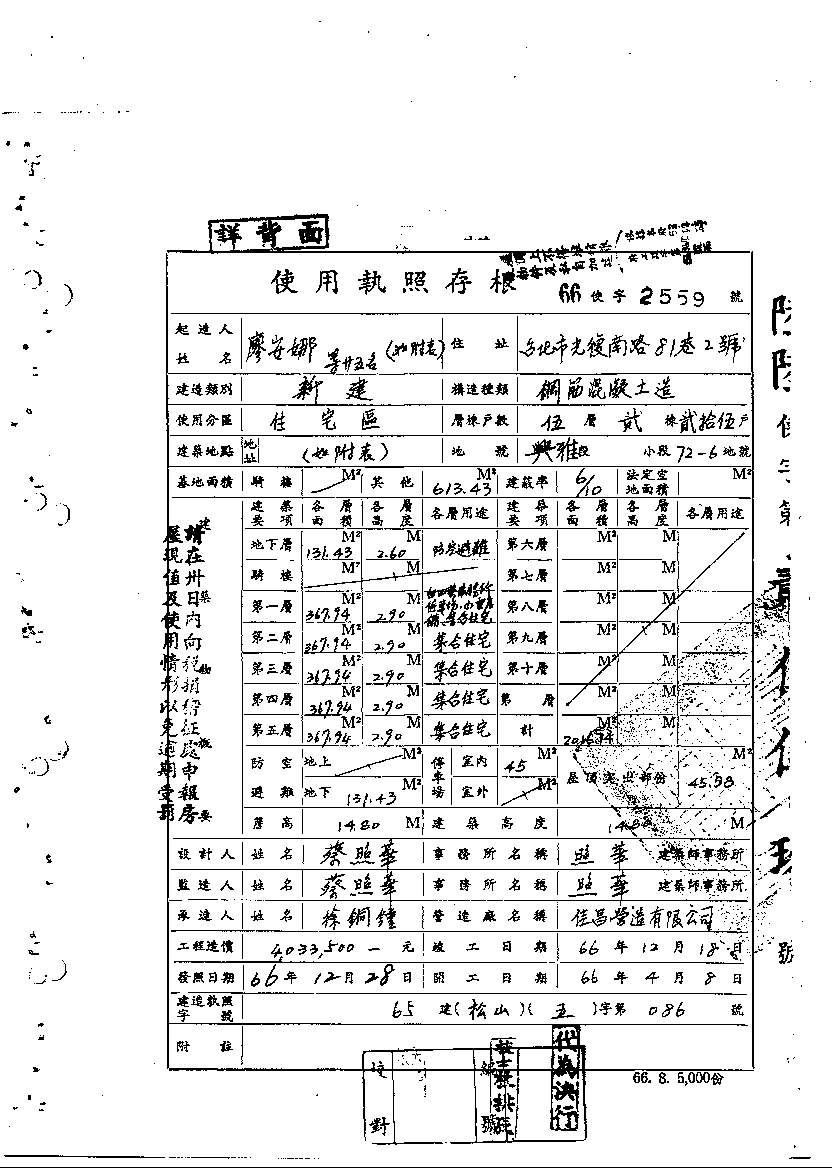 詳背面
使用執照存根
66 使字 2559 號
起造人姓名 廖安娜 等廿五名 (如附表) 住址 台北市光復南路81巷2號
建造類別 新建 構造種類 鋼筋混凝土造
使用分區 住宅區 層棟戶數 伍層 貳棟 貳拾伍戶
建築地點 地址 (如附表) 地號 興雅段 小段 72-6 地號
基地面積 騎樓 M² 其他 613.43 M² 建蔽率 6/10 法定空地面積 M²
建築要項 各層面積 各層高度 各層用途 建築要項 各層面積 各層高度 各層用途
地下層 131.43 M² 2.60 M 防空避難 第六層 M² M
騎樓 M² M 第七層 M² M
第一層 367.94 M² 2.90 M 集合住宅 第八層 M² M
第二層 367.94 M² 2.90 M 集合住宅 第九層 M² M
第三層 367.94 M² 2.90 M 集合住宅 第十層 M² M
第四層 367.94 M² 2.90 M 集合住宅 第 層 M² M
第五層 367.94 M² 2.90 M 集合住宅 計 M² M
防空避難 地上 M² 停車場 室內 45 M² 屋頂突出部份 45.38 M²
地下 131.43 M² 室外 M²
簷高 14.80 M 建築高度 M
設計人 姓名 蔡照華 事務所名稱 照華 建築師事務所
監造人 姓名 蔡照華 事務所名稱 照華 建築師事務所
承造人 姓名 徐銅鐘 營造廠名稱 佳昌營造有限公司
工程造價 4,033,500 — 元 竣工日期 66年12月18日
發照日期 66年12月28日 開工日期 66年4月8日
建造執照字號 65 建(松山)(五)字第 086 號
附註
66. 8. 5,000份
校對
編號
代為決行
請在卅日內向稅捐稽征處申報房
屋現值及使用情形以免逾期受罰
建築物概要
號